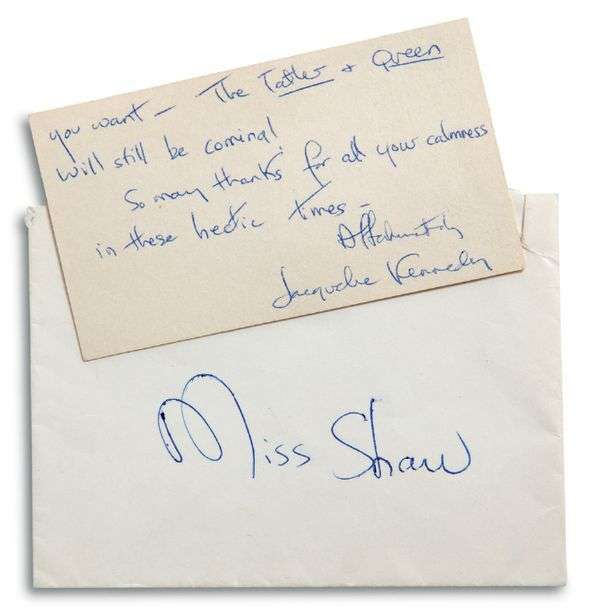 you want — The Tatler + Queen
will still be coming!
So many thanks for all your calmness
in these hectic times —
Affectionately
Jacqueline Kennedy
Miss Shaw